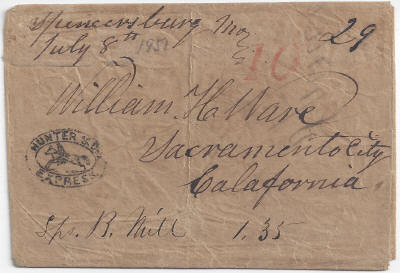 Spencersburg Mo 29
July 8th 1851
10
William H. Ware
Sacramento City
Calafornia
HUNTER & CO'S
EXPRESS
R. Mill 1.35